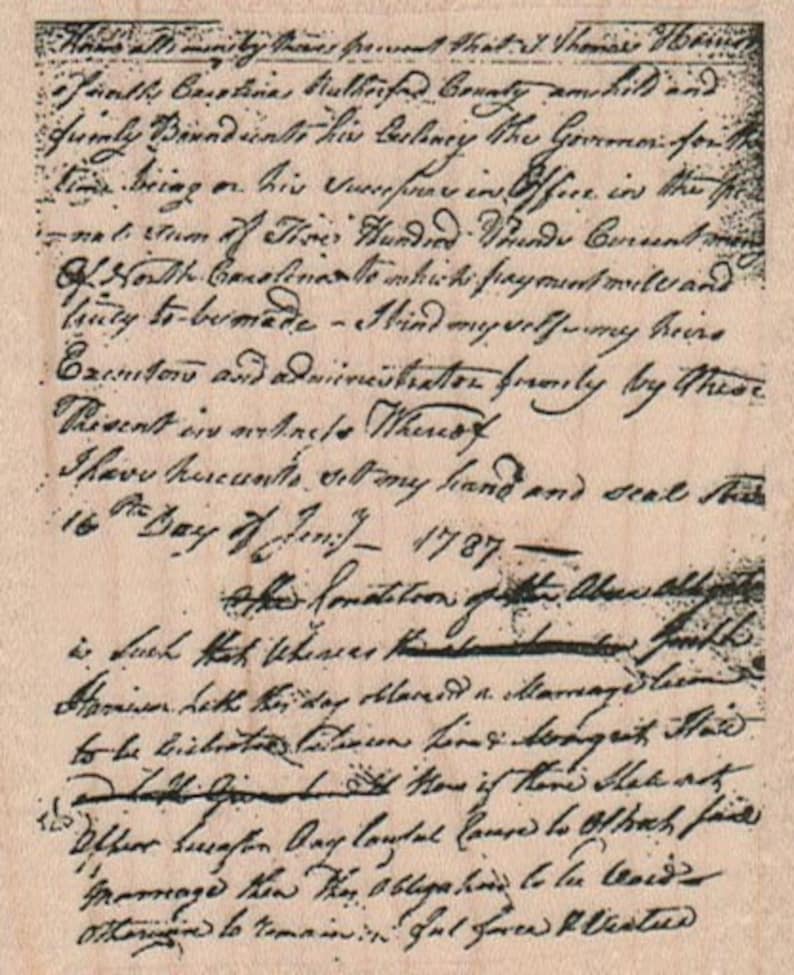 Know all men by these present that I Thomas
of North Carolina Rutherford County am held and
firmly Bound unto his Exclency the Governor for the
time being or his successors in Office in the pe
-nal sum of Five Hundred Pounds Current mony
Of North Carolina to which payment well and
truly to be made - I bind my self my heirs
Executors and administrator firmly by these
Present in witness Whereof
I have hereunto set my hand and seal this
16th Day of Jeny - 1787 —
The Condition of the Above obligation
is Such that whereas
hath this day obtained a Marriage
to be Celebrated between him &
Now if there Shall not
Appear hereafter Any lawful Cause to Obstruct said
Marriage then this Obligation to be Void
otherwise to remain in ful force & Vertue